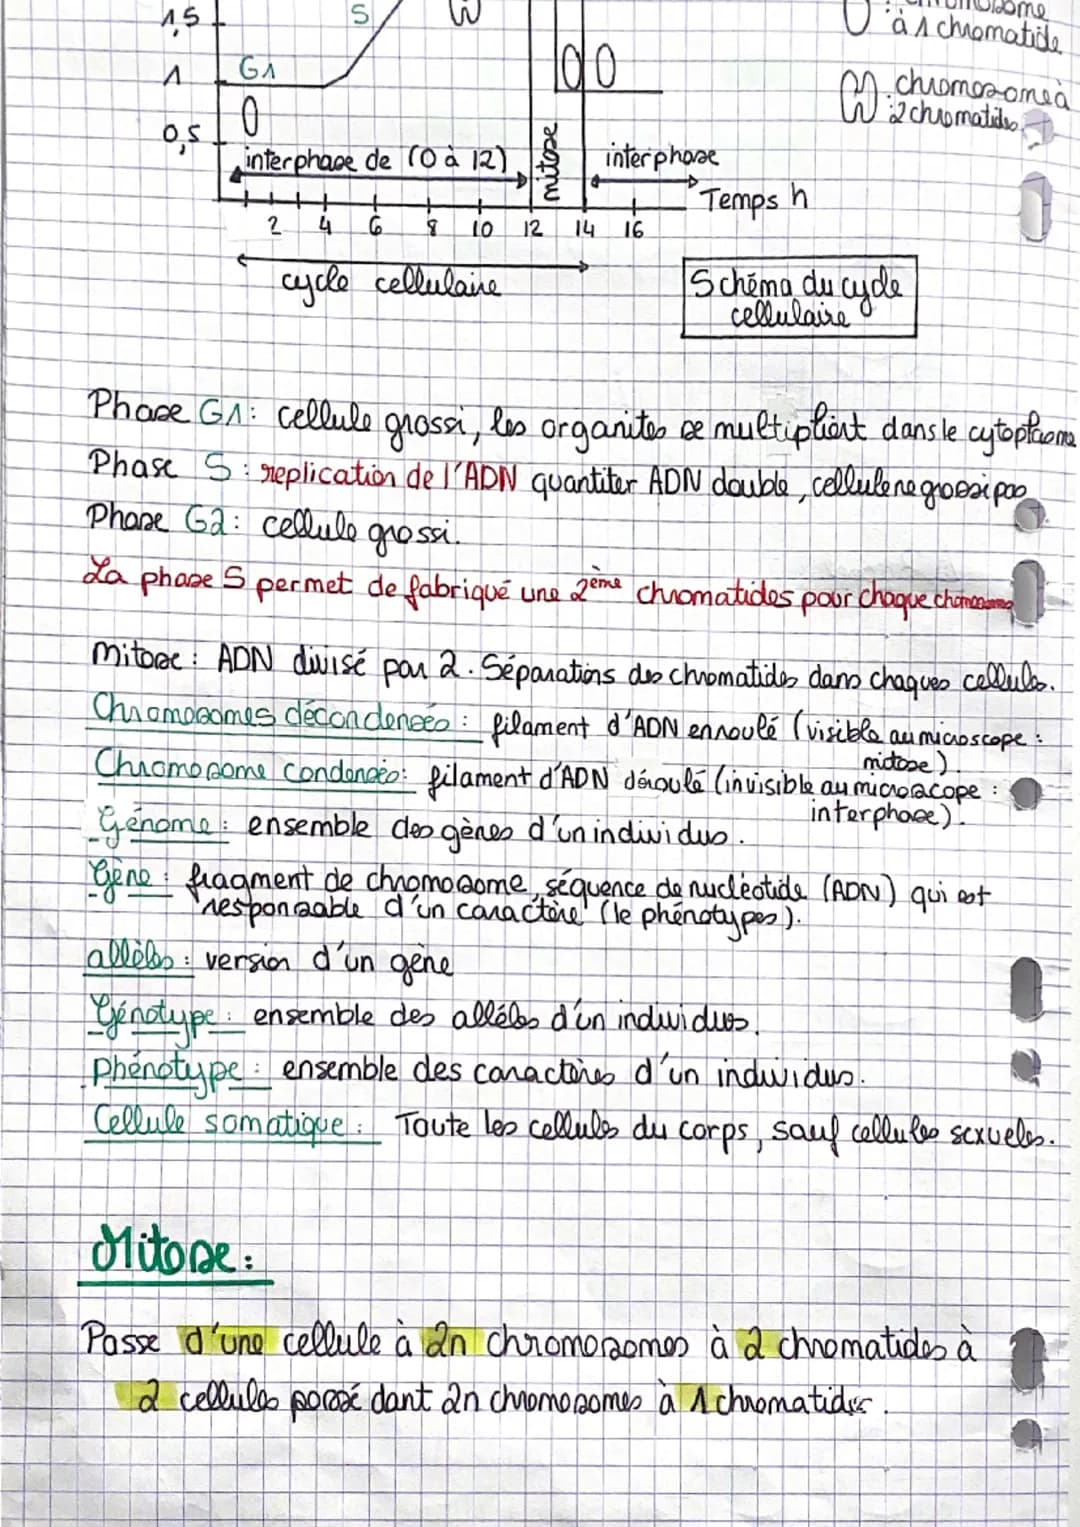 1,5 S
à 1 chromatide
1 G1
chromosome à
: 2 chromatides
0,5
interphase de (0 à 12) mitose interphase
Temps h
2 4 6 8 10 12 14 16
cycle cellulaire
Schéma du cycle
cellulaire
Phase G1 : cellule grossi, les organites se multiplient dans le cytoplasme
Phase S : replication de l'ADN quantiter ADN double, cellule ne grossi pas
Phase G2 : cellule grossi.
La phase S permet de fabriqué une 2ème chromatides pour chaque chromosome
Mitose : ADN divisé par 2. Séparations des chromatides dans chaques cellules.
Chromosomes décondensés : filament d'ADN enroulé (visible au microscope :
mitose).
Chromosome condensés : filament d'ADN déroulé (invisible au microscope :
interphase).
Génome : ensemble des gènes d'un individus.
Gène : fragment de chromosome, séquence de nucléotide (ADN) qui est
responsable d'un caractère (le phénotypes).
allèles : version d'un gène
Génotype : ensemble des allèles d'un individus.
Phénotype : ensemble des caractères d'un individus.
Cellule somatique : Toute les cellules du corps, sauf cellules sexueles.
Mitose :
Passe d'une cellule à 2n chromosomes à 2 chromatides à
2 cellules possédant 2n chromosomes à 1 chromatides.